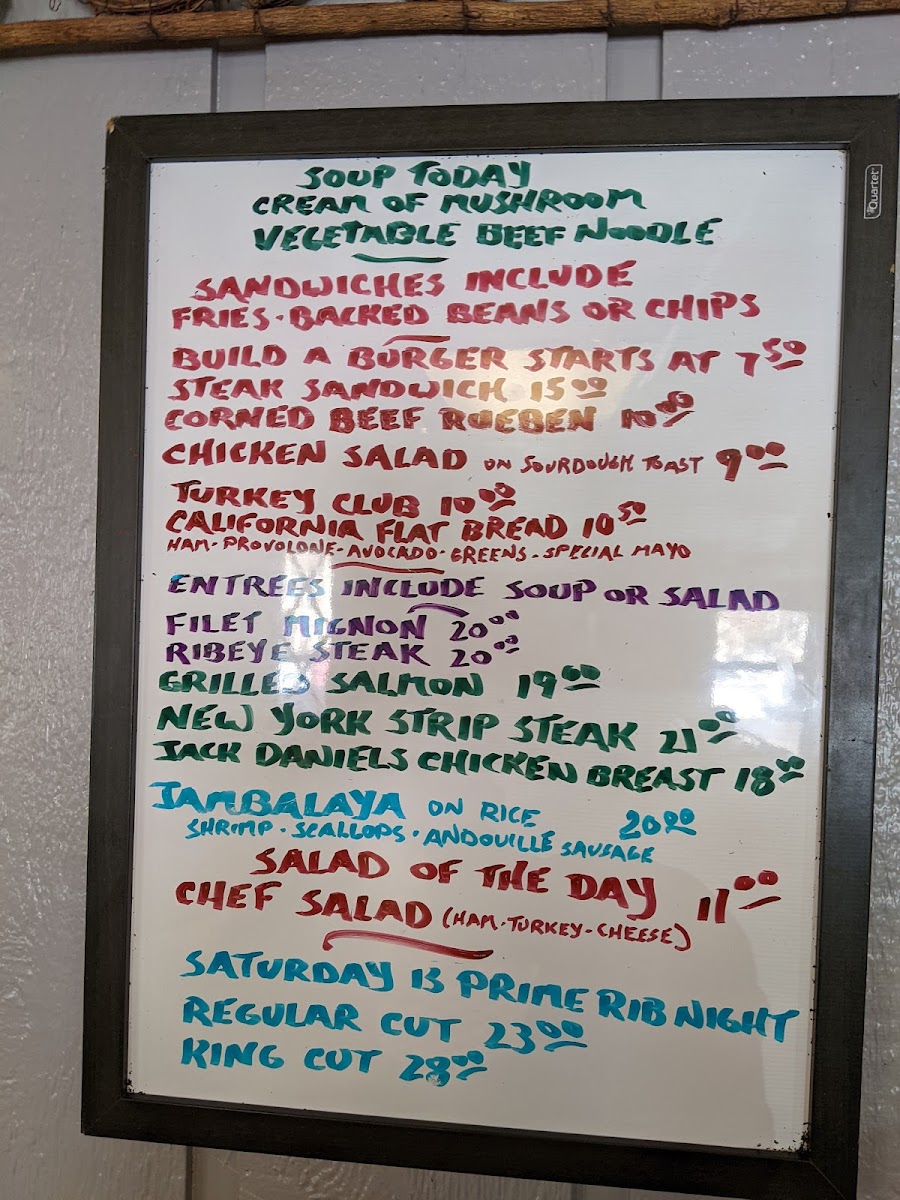 Quartet
SOUP TODAY
CREAM OF MUSHROOM
VEGETABLE BEEF NOODLE
SANDWICHES INCLUDE
FRIES · BACKED BEANS OR CHIPS
BUILD A BURGER STARTS AT 7 50
STEAK SANDWICH 15 00
CORNED BEEF RUEBEN 10 00
CHICKEN SALAD ON SOURDOUGH TOAST 9 00
TURKEY CLUB 10 00
CALIFORNIA FLAT BREAD 10 50
HAM - PROVOLONE - AVOCADO - GREENS - SPECIAL MAYO
ENTRÉES INCLUDE SOUP OR SALAD
FILET MIGNON 20 00
RIBEYE STEAK 20 00
GRILLED SALMON 19 00
NEW YORK STRIP STEAK 21 00
JACK DANIELS CHICKEN BREAST 18 50
JAMBALAYA ON RICE 20 00
SHRIMP · SCALLOPS · ANDOUILLE SAUSAGE
SALAD OF THE DAY
CHEF SALAD (HAM - TURKEY - CHEESE) 11 00
SATURDAY IS PRIME RIB NIGHT
REGULAR CUT 23 00
KING CUT 28 00